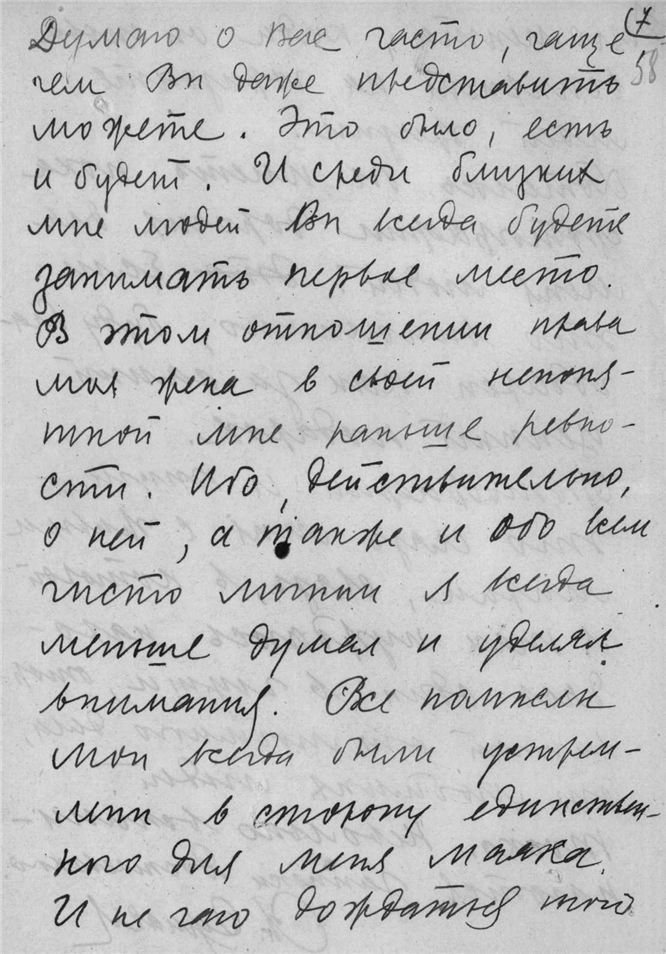 (7
58
Думаю о Вас часто, чаще
чем Вы даже представить
можете. Это было, есть
и будет. И среди близких
мне людей Вы всегда будете
занимать первое место.
В этом отношении права
моя жена в своей непоня-
тной мне раньше ревно-
сти. Ибо, действительно,
о ней, а также и обо всем
чисто личном я всегда
меньше думал и уделял
внимания. Все помыслы
мои всегда были устрем-
лены в сторону единствен-
ного для меня маяка.
И не чаю дождаться того